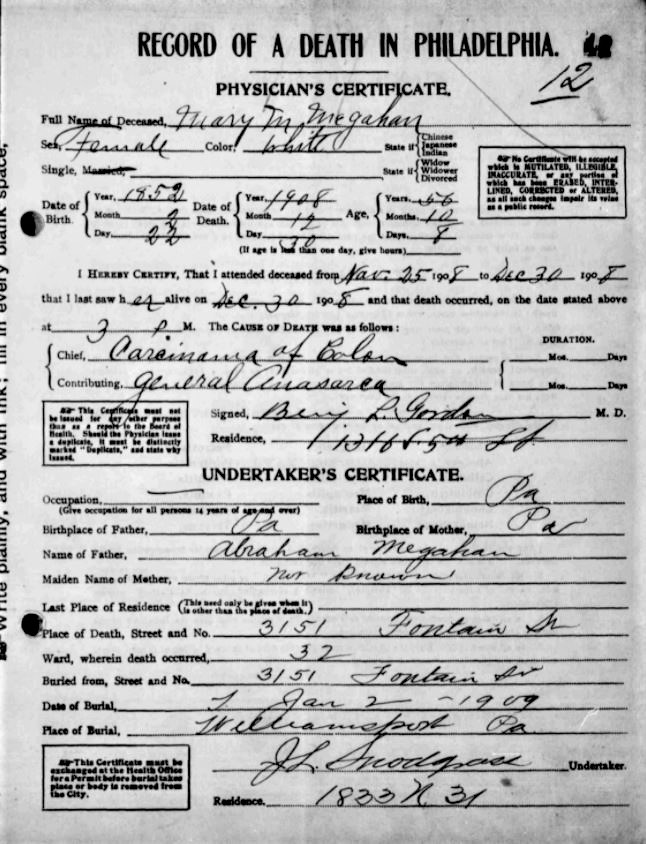 RECORD OF A DEATH IN PHILADELPHIA.
12
PHYSICIAN'S CERTIFICATE.
Full Name of Deceased, Mary M. Megahan
Sex, Female Color, White State if { Chinese Japanese Indian
Single, Married, State if { Widow Widower Divorced
No Certificate will be accepted which is MUTILATED, ILLEGIBLE, INACCURATE, or any portion of which has been ERASED, INTERLINED, CORRECTED or ALTERED, as all such changes impair its value as a public record.
Date of Birth. { Year, 1852 Month 2 Day, 22
Date of Death. { Year, 1908 Month 12 Day 30
Age, { Years, 56 Months, 10 Days, 8
(If age is less than one day, give hours)
I HEREBY CERTIFY, That I attended deceased from Nov. 25 1908 to Dec 30 1908
that I last saw her alive on Dec. 30 1908 and that death occurred, on the date stated above
at 3 P M. The CAUSE OF DEATH was as follows:
DURATION.
Chief, Carcinama of Colon Mos. Days
Contributing, General Anasarca Mos. Days
This Certificate must not be issued for any other purpose than as a report to the Board of Health. Should the Physician issue a duplicate, it must be distinctly marked "Duplicate," and state why issued.
Signed, Benj L. Gordon M. D.
Residence, 1316 S. 5th St
UNDERTAKER'S CERTIFICATE.
Occupation, Place of Birth, Pa
(Give occupation for all persons 14 years of age and over)
Birthplace of Father, Pa Birthplace of Mother, Pa
Name of Father, Abraham Megahan
Maiden Name of Mother, Not Known
Last Place of Residence (This need only be given when it is other than the place of death.)
Place of Death, Street and No. 3151 Fontain St
Ward, wherein death occurred, 32
Buried from, Street and No. 3151 Fontain St
Date of Burial, Jan 2 - 1909
Place of Burial, Williamsport Pa
This Certificate must be exchanged at the Health Office for a Permit before burial takes place or body is removed from the City.
J L Snodgrass Undertaker.
Residence. 1833 N. 31
Write plainly, and with ink; fill in every blank space,